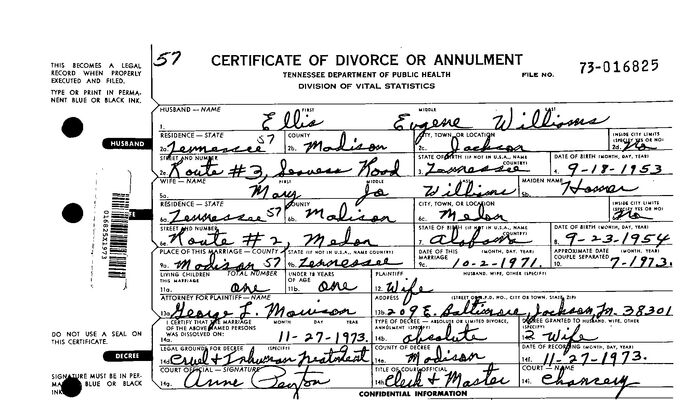 57
CERTIFICATE OF DIVORCE OR ANNULMENT
TENNESSEE DEPARTMENT OF PUBLIC HEALTH
DIVISION OF VITAL STATISTICS
FILE NO. 73-016825
THIS BECOMES A LEGAL
RECORD WHEN PROPERLY
EXECUTED AND FILED.
TYPE OR PRINT IN PERMA-
NENT BLUE OR BLACK
INK.
HUSBAND
HUSBAND — NAME FIRST MIDDLE LAST
1. Ellis Eugene Williams
RESIDENCE — STATE COUNTY CITY, TOWN, OR LOCATION INSIDE CITY LIMITS (SPECIFY YES OR NO)
2a. Tennessee 57 2b. Madison 2c. Jackson 2d. No
STREET AND NUMBER STATE OF BIRTH (IF NOT IN U.S.A., NAME COUNTRY) DATE OF BIRTH (MONTH, DAY, YEAR)
2e. Route #3, Road 3. Tennessee 4. 9-18-1953
WIFE — NAME FIRST MIDDLE LAST MAIDEN NAME
5a. Mary Jo Williams
RESIDENCE — STATE COUNTY CITY, TOWN, OR LOCATION INSIDE CITY LIMITS (SPECIFY YES OR NO)
6a. Tennessee 57 6b. Madison 6c. Medon No
STREET AND NUMBER STATE OF BIRTH (IF NOT IN U.S.A., NAME COUNTRY) DATE OF BIRTH (MONTH, DAY, YEAR)
6e. Route #2, Medon 7. Alabama 8. 9-23-1954
PLACE OF THIS MARRIAGE — COUNTY STATE (IF NOT IN U.S.A., NAME COUNTRY) DATE OF THIS MARRIAGE (MONTH, DAY, YEAR) APPROXIMATE DATE COUPLE SEPARATED
9a. Madison 57 9b. Tennessee 9c. 10-2-1971. 10. 7-1973.
LIVING CHILDREN THIS MARRIAGE TOTAL NUMBER UNDER 18 YEARS OF AGE PLAINTIFF HUSBAND, WIFE, OTHER (SPECIFY)
11a. one 11b. one 12. Wife
ATTORNEY FOR PLAINTIFF — NAME ADDRESS (STREET OR R.F.D. NO., CITY OR TOWN, STATE, ZIP)
13a. George L. Morrison 13b. 209 E. Baltimore, Jackson, Tn. 38301
I CERTIFY THAT THE MARRIAGE OF THE ABOVE NAMED PERSONS WAS DISSOLVED ON: MONTH DAY YEAR TYPE OF DECREE — ABSOLUTE OR LIMITED DIVORCE, ANNULMENT (SPECIFY) DIVORCE GRANTED TO HUSBAND, WIFE, OTHER (SPECIFY)
14a. 11-27-1973. 14b. absolute 2 Wife
DO NOT USE A SEAL ON
THIS CERTIFICATE.
DECREE
LEGAL GROUNDS FOR DECREE (SPECIFY) COUNTY OF DECREE DATE OF RECORDING (MONTH, DAY, YEAR)
14d. Cruel & Inhuman Treatment 14e. Madison 14f. 11-27-1973.
SIGNATURE MUST BE IN PER-
BLUE OR BLACK
INK
COURT OFFICIAL — SIGNATURE TITLE OF COURT OFFICIAL COURT — NAME
14g. Anne Peyton 14h. Clerk & Master 14i. Chancery
CONFIDENTIAL INFORMATION